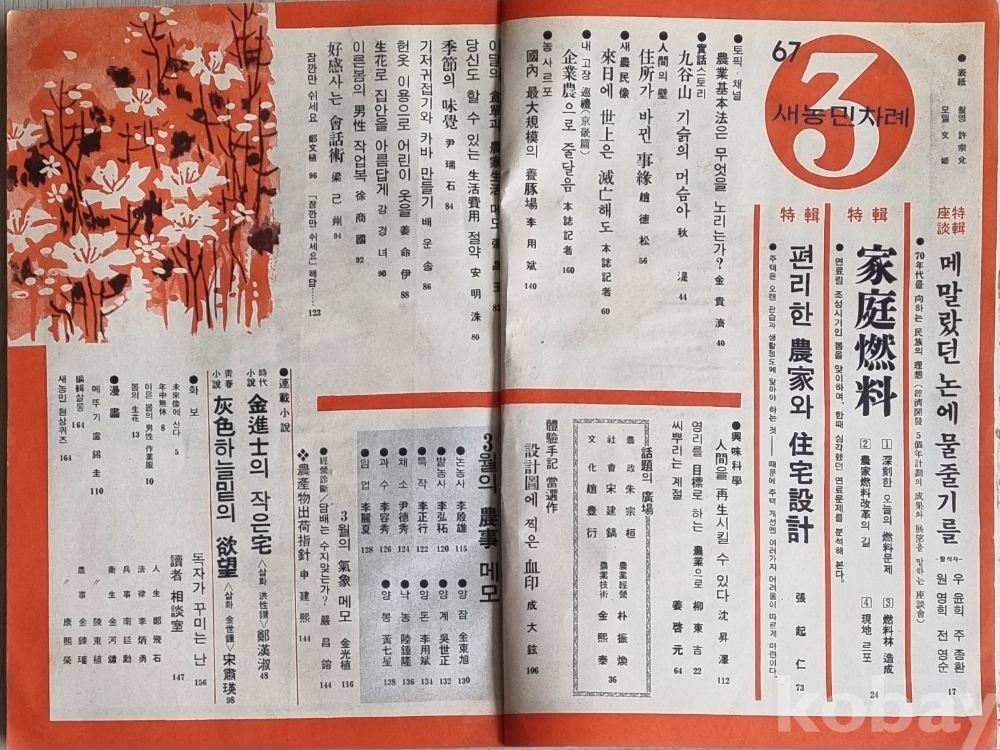 67
3
새농민차례
●表紙
촬영 許宗允
모델 文姬
特輯
座談
메말랐던 논에 물줄기를
●70年代를 向하는 民族의 理想(經濟開發 5個年計劃의 成果와 展望을 말하는 座談會)
-참석자-
우윤희 주종환
원영희 전영순
17
特輯
家庭燃料
●연료림 조성시기인 봄을 맞이하여, 한때 심각했던 연료문제를 분석해 본다.
1 深刻한 오늘의 燃料문제
2 農家燃料改革의 길
3 燃料林 造成
4 現地 르포
24
特輯
편리한 農家와 住宅設計
張起仁
73
●주택은 오랜 관습과 생활정도에 맞아야 하는 것――때문에 주택 개선엔 여러가지 어려움이 따르게 마련이다.
●토픽・채널
農業基本法은 무엇을 노리는가? 金貴濟 40
●實話스토리
九谷山 기슭의 머슴아 秋湜 44
●人間의 壁
住所가 바뀐 事緣 趙德松 56
●새農民像
來日에 世上은 滅亡해도 本誌記者 60
●내고장 巡禮(京畿篇)
企業農으로 줄달음 本誌記者 160
●농사르포
國內 最大規模의 養豚場 李用斌 140
이달의 食單과 農家生活 메모 張昌玉 82
당신도 할 수 있는 生活費用 절약 安明洙 80
季節의 味覺 尹瑞石 84
기저귀접기와 카바 만들기 배운송 86
헌옷 이용으로 어린이 옷을 姜命伊 88
生花로 집안을 아름답게 강경녀 90
이른봄의 男性 작업복 徐商國 92
好感사는 會話術 梁己州 94
잠깐만 쉬세요 鄭文植 96
「잠깐만 쉬세요」해답…… 123
●興味科學
人間을 再生시킬 수 있다 沈昇澤 112
영리를 目標로 하는 農業으로 柳東吉 22
씨뿌리는 계절 姜啓元 64
話題의 廣場
農政 朱宗桓
社會 宋建鎬
文化 趙豊衍
農業經營 朴振煥
農業技術 金熙泰
36
體驗手記 當選作
設計圖에 찍은 血印 成大鉉 106
3월의 農事 메모
●논농사 李殷雄 115
●밭농사 李弘䄷 120
●특작 李正行 122
●채소 尹德秀 124
●과수 李容秀 126
●임업 李麗夏 128
●양잠 金東旭 130
●양계 吳世正 132
●양돈 李用斌 134
●낙농 陸鍾隆 136
●양봉 黃七星 138
3월의 氣象 메모 金光植 116
●經營診斷/담배는 수지맞는가? 嚴昌鎔 144
❖農產物出荷指針 申建熙 144
●連載小說
時代小說 金進士의 작은宅 〈삽화 洪性鍾〉 鄭漢淑 48
靑春小說 灰色하늘밑의 欲望 〈삽화 金世鍾〉 宋肅瑛 98
●화보
未來像에 산다 5
年中無休 8
이른 봄의 男性作業服 10
봄의 生花 13
●漫畫
메뚜기 盧錫圭 110
編輯살롱 164
새농민 현상퀴즈 164
독자가 꾸미는 난 156
讀者 相談室 147
人生 鄭飛石
法律 李炳勇
兵事 南廷勳
衛生 金河鏞
〃 陳東植
農事 金鍾瑾
〃 康熙榮
kobay